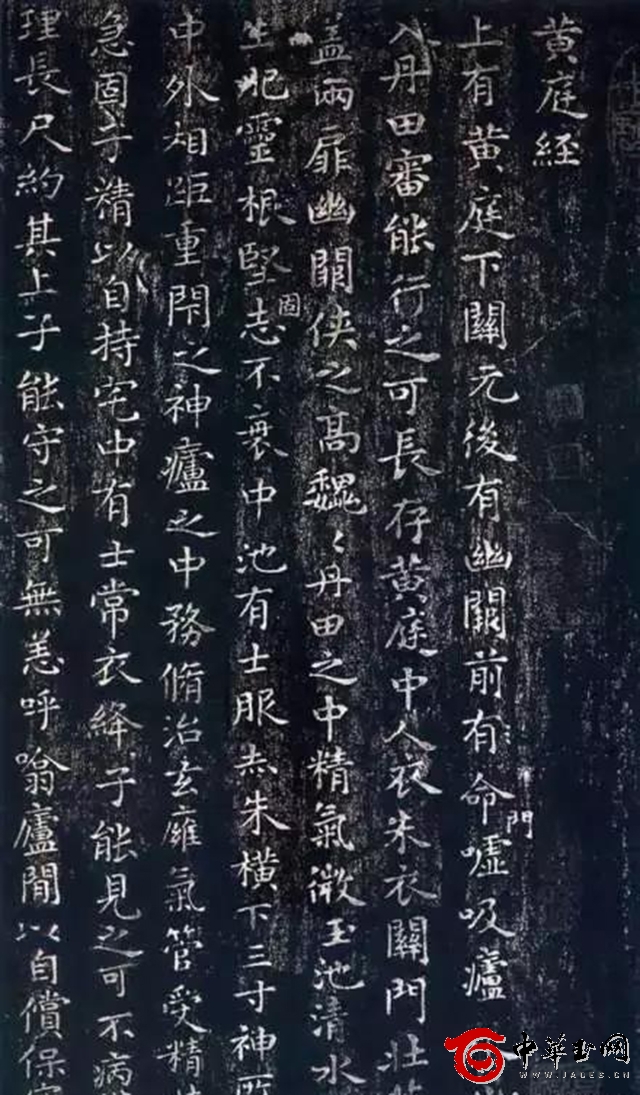 黄庭經
上有黄庭下關元後有幽闕前有命門噓吸廬
入丹田審能行之可長存黄庭中人衣朱衣關門壯
盖兩扉幽闕俠之高魏〻丹田之中精氣微玉池清水
生肥靈根堅固志不衰中池有士服赤朱横下三寸神
中外相距重閇之神廬之中務脩治玄廱氣管受精
急固子精以自持宅中有士常衣絳子能見之可不病
理長尺約其上子能守之可無恙呼噏廬間以自償保
中华书网
WWW.JAGES.CN